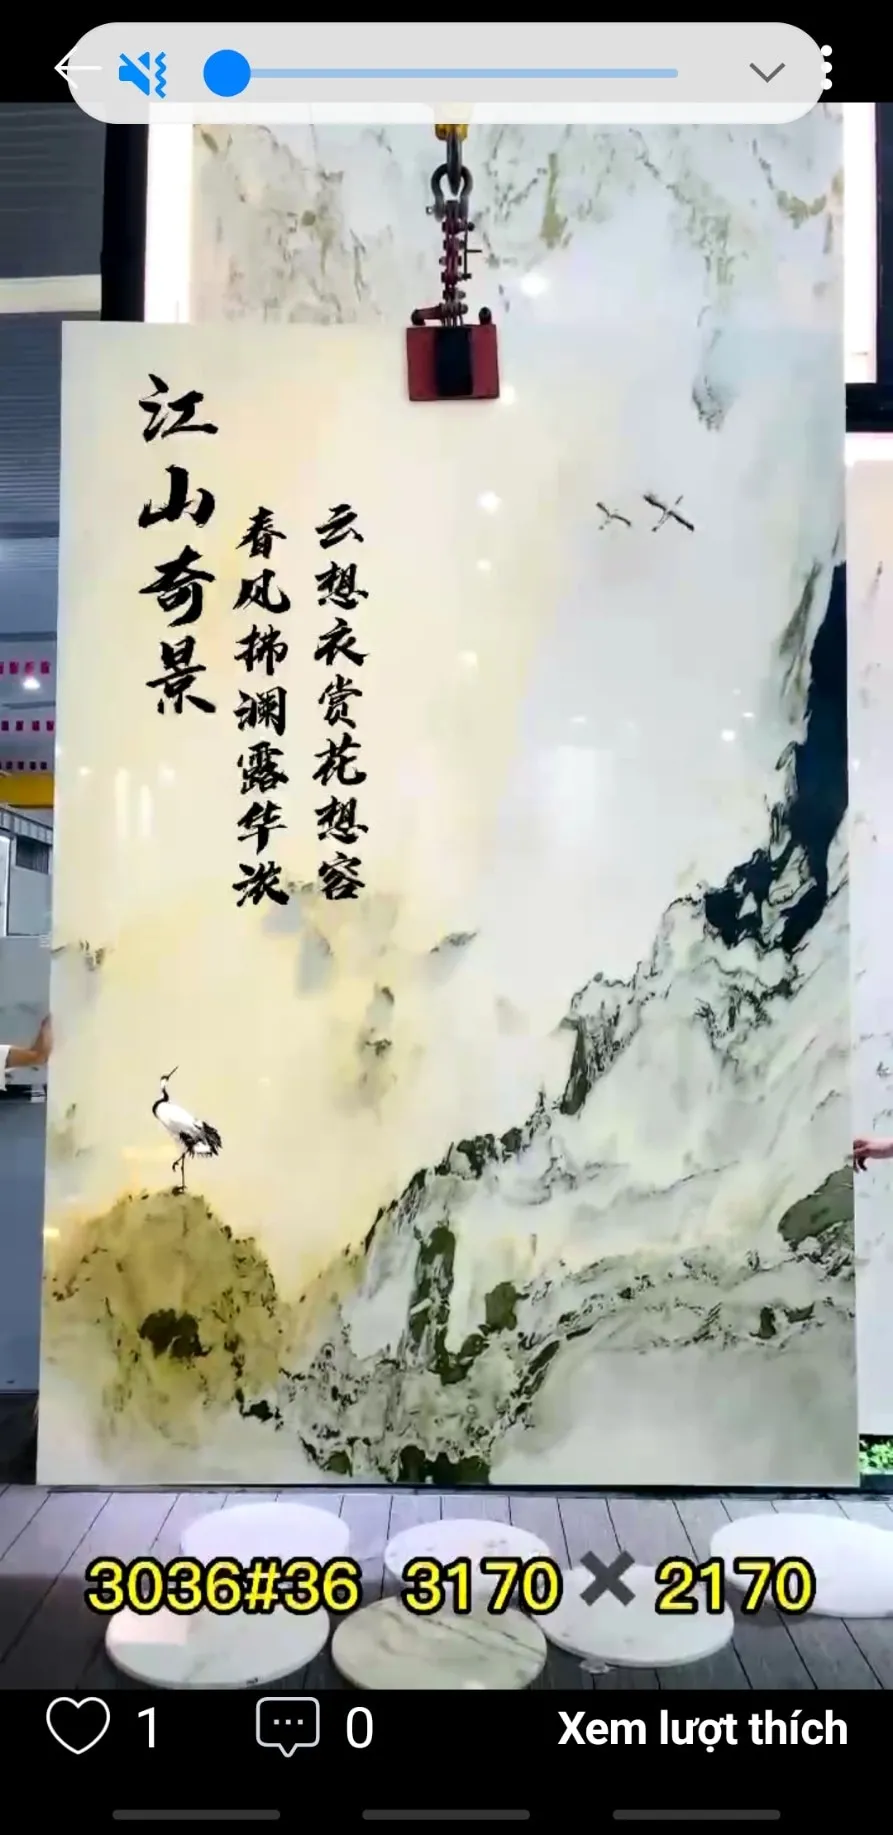 江山奇景
云想衣赏花想容
春风拂澜露华浓
3036#36 3170✖2170
1
0
Xem lượt thích